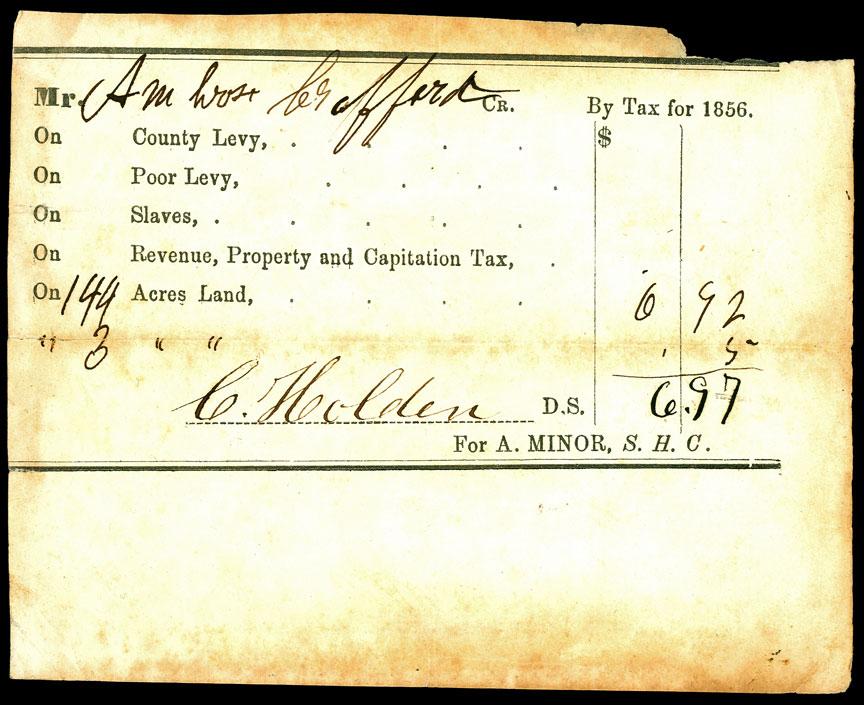 Mr. Ambrose Crofford CR. By Tax for 1856.
On County Levy, . . . . $
On Poor Levy, . . . .
On Slaves, . . . . .
On Revenue, Property and Capitation Tax, .
On 144 Acres Land, . . . . 6 92
" 3 " " . 5
C. Holden D.S. 6.97
For A. MINOR, S. H. C.